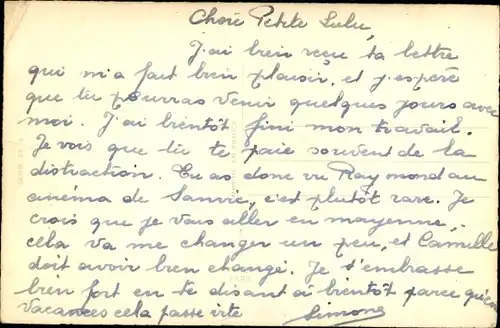 Chère Petite Lulu,
J'ai bien reçu ta lettre
qui m'a fait bien plaisir, et j'espère
que tu pourras venir quelques jours avec
moi. J'ai bientôt fini mon travail.
Je vois que tu te paie souvent de la
distraction. Tu as donc vu Raymond au
cinéma de Sanvic, c'est plutôt rare. Je
crois que je vais aller en mayenne,
cela va me changer un peu, et Camille
doit avoir bien changé. Je t'embrasse
bien fort en te disant à bientôt parce qu'en
vacances cela passe vite Simone